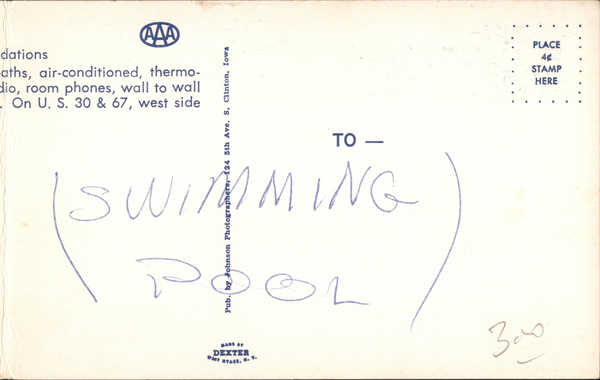 AAA
dations
aths, air-conditioned, thermo-
dio, room phones, wall to wall
. On U. S. 30 & 67, west side
Pub. by Johnson Photographers, 124 5th Ave. S, Clinton, Iowa
PLACE
4¢
STAMP
HERE
TO —
(SWIMMING
POOL)
MADE BY
DEXTER
WEST NYACK, N. Y.
3.00